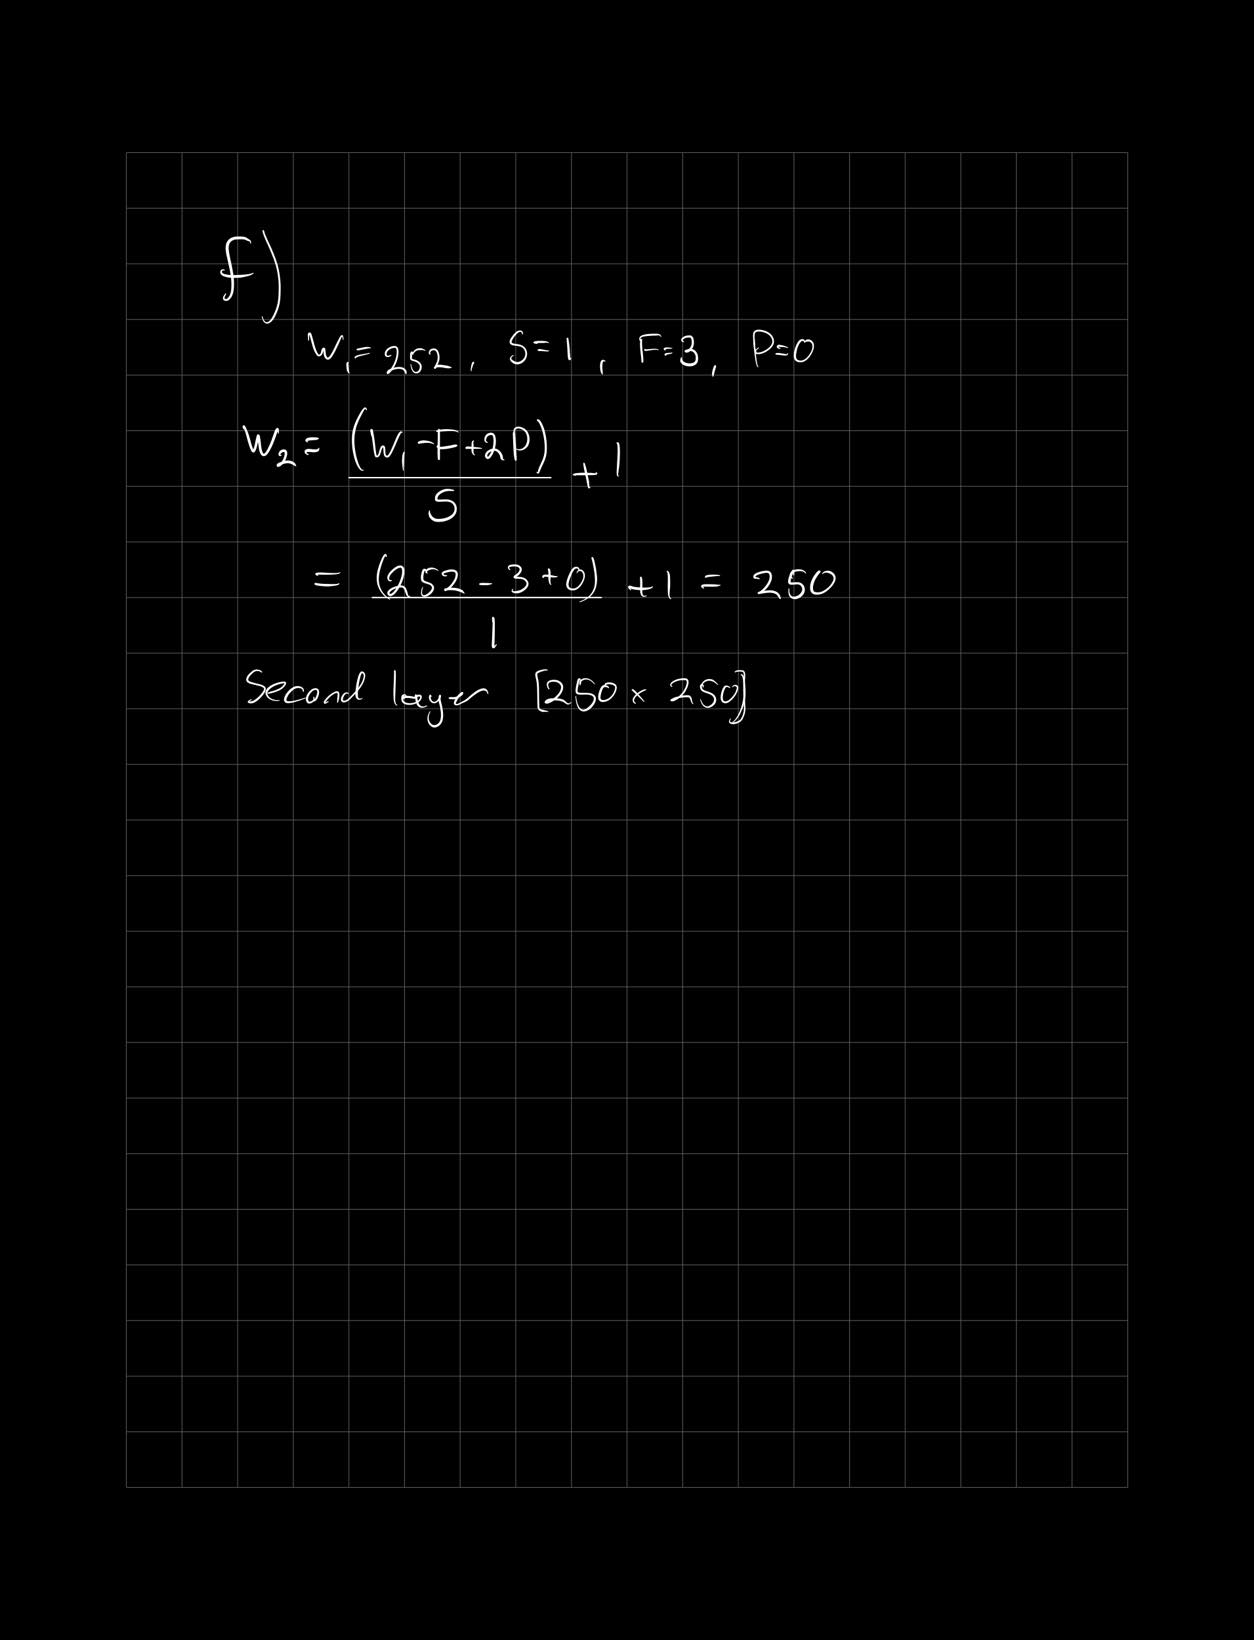 f)
W₁=252, S=1, F=3, P=0
W₂= (W₁-F+2P)/S + 1
= (252-3+0)/1 + 1 = 250
Second layer [250 × 250]